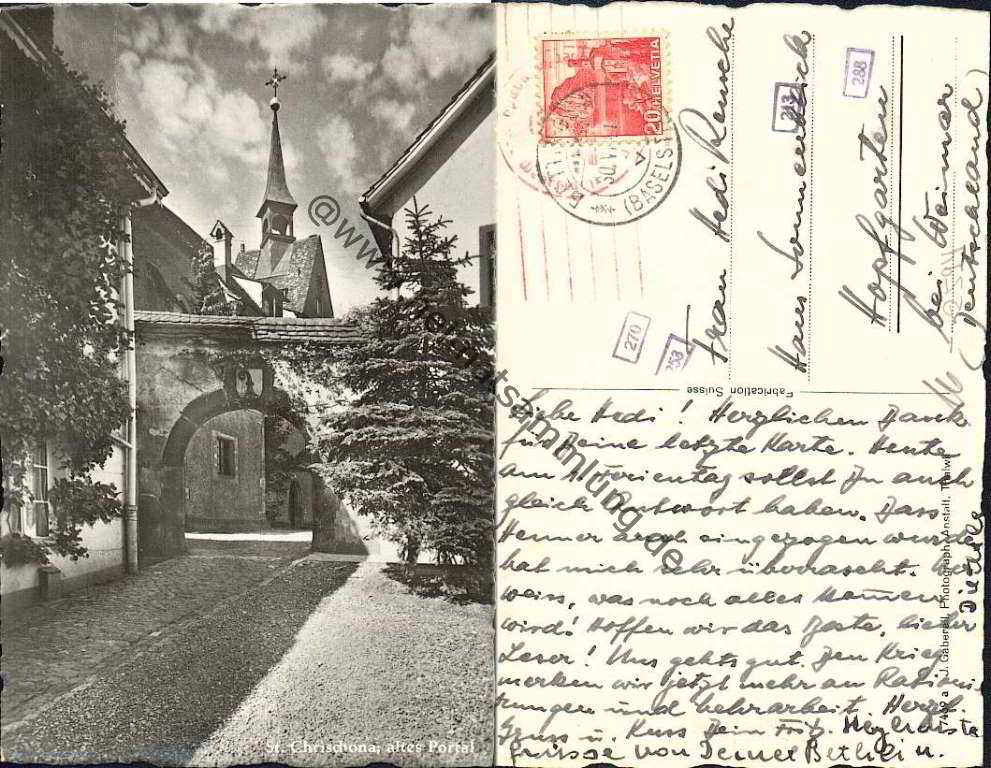 St. Chrischona; altes Portal
HELVETIA
20
(BASELST
270
253
213
288
Frau Hedi Reusche
Haus Sonnenblick
Hopfgarten
bei Weimar
(Deutschland)
Fabrication Suisse
7492a J. Gaberell, Photograph. Anstalt, Thalwil
Liebe Hedi! Herzlichen Dank
für Deine letzte Karte. Heute
am 1. Ferientag sollst Du auch
gleich Antwort haben. Dass
Henner auch eingezogen wurde
hat mich sehr überrascht. Wer
weiss, was noch alles kommen
wird! Hoffen wir das Beste, lieber
Leser! Uns gehts gut. Den Krieg
merken wir jetzt mehr an Rationie
rungen und Mehrarbeit. Herzl.
Gruss u. Kuss Dein Fritz. Herzlichste
Grüsse von Deiner Bethli u.
@www.heimatsammlung.de